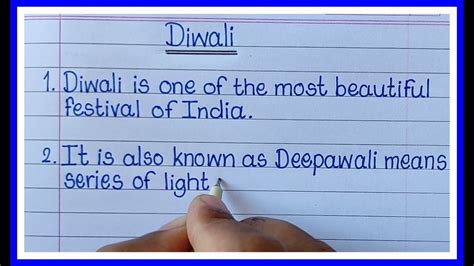 Diwali
1. Diwali is one of the most beautiful
festival of India.
2. It is also known as Deepawali means
series of light